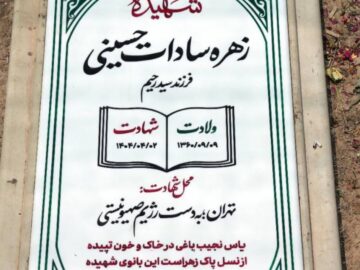 شهیده
زهره سادات حسینی
فرزند سید رحیم
ولادت شهادت
۱۳۶۰/۰۹/۰۹ ۱۴۰۴/۰۴/۰۲
محل شهادت:
تهران؛ به دست رژیم صهیونیستی
یاس نجیب باغی در خاک و خون تپیده
از نسل پاک زهراست این بانوی شهیده